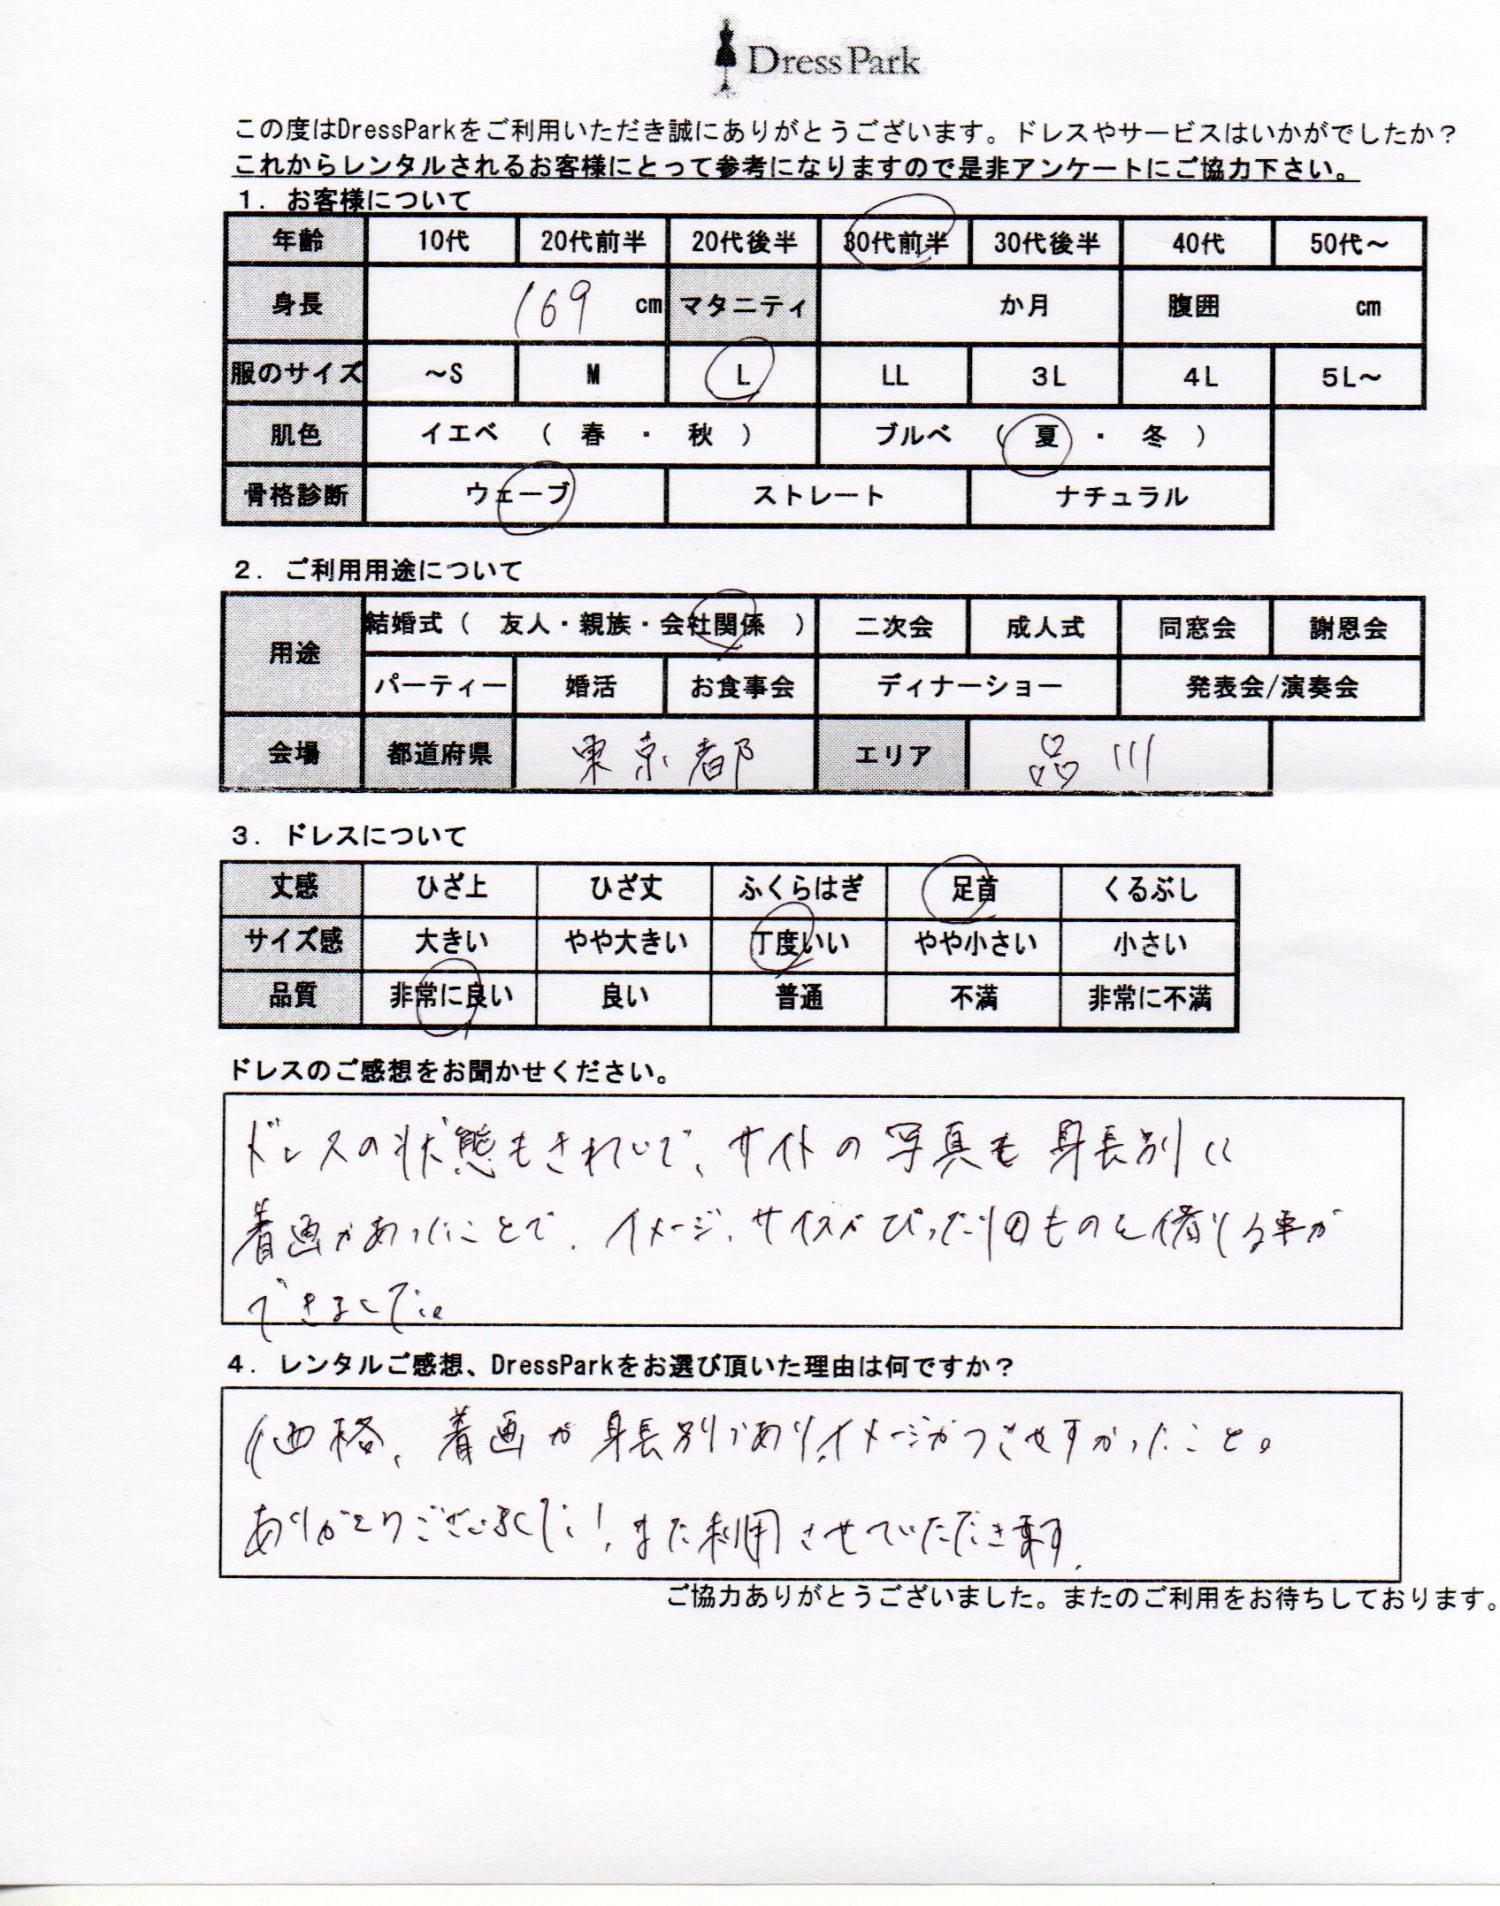 DressPark
この度はDressParkをご利用いただき誠にありがとうございます。ドレスやサービスはいかがでしたか？
これからレンタルされるお客様にとって参考になりますので是非アンケートにご協力下さい。
１．お客様について
年齢 10代 20代前半 20代後半 30代前半 30代後半 40代 50代～
身長 169 cm マタニティ か月 腹囲 cm
服のサイズ ～S M L LL ３L ４L ５L～
肌色 イエベ （ 春 ・ 秋 ） ブルベ （ 夏 ・ 冬 ）
骨格診断 ウェーブ ストレート ナチュラル
２．ご利用用途について
用途 結婚式（ 友人・親族・会社関係 ） 二次会 成人式 同窓会 謝恩会
パーティー 婚活 お食事会 ディナーショー 発表会/演奏会
会場 都道府県 東京都 エリア 品川
３．ドレスについて
丈感 ひざ上 ひざ丈 ふくらはぎ 足首 くるぶし
サイズ感 大きい やや大きい 丁度いい やや小さい 小さい
品質 非常に良い 良い 普通 不満 非常に不満
ドレスのご感想をお聞かせください。
ドレスの状態もきれいで、サイトの写真も身長別に
着画があったことで、イメージ、サイズがぴったりのものを借りる事が
できました。
４．レンタルご感想、DressParkをお選び頂いた理由は何ですか？
価格、着画が身長別であり、イメージがつきやすかったこと。
ありがとうございました！また利用させていただきます。
ご協力ありがとうございました。またのご利用をお待ちしております。